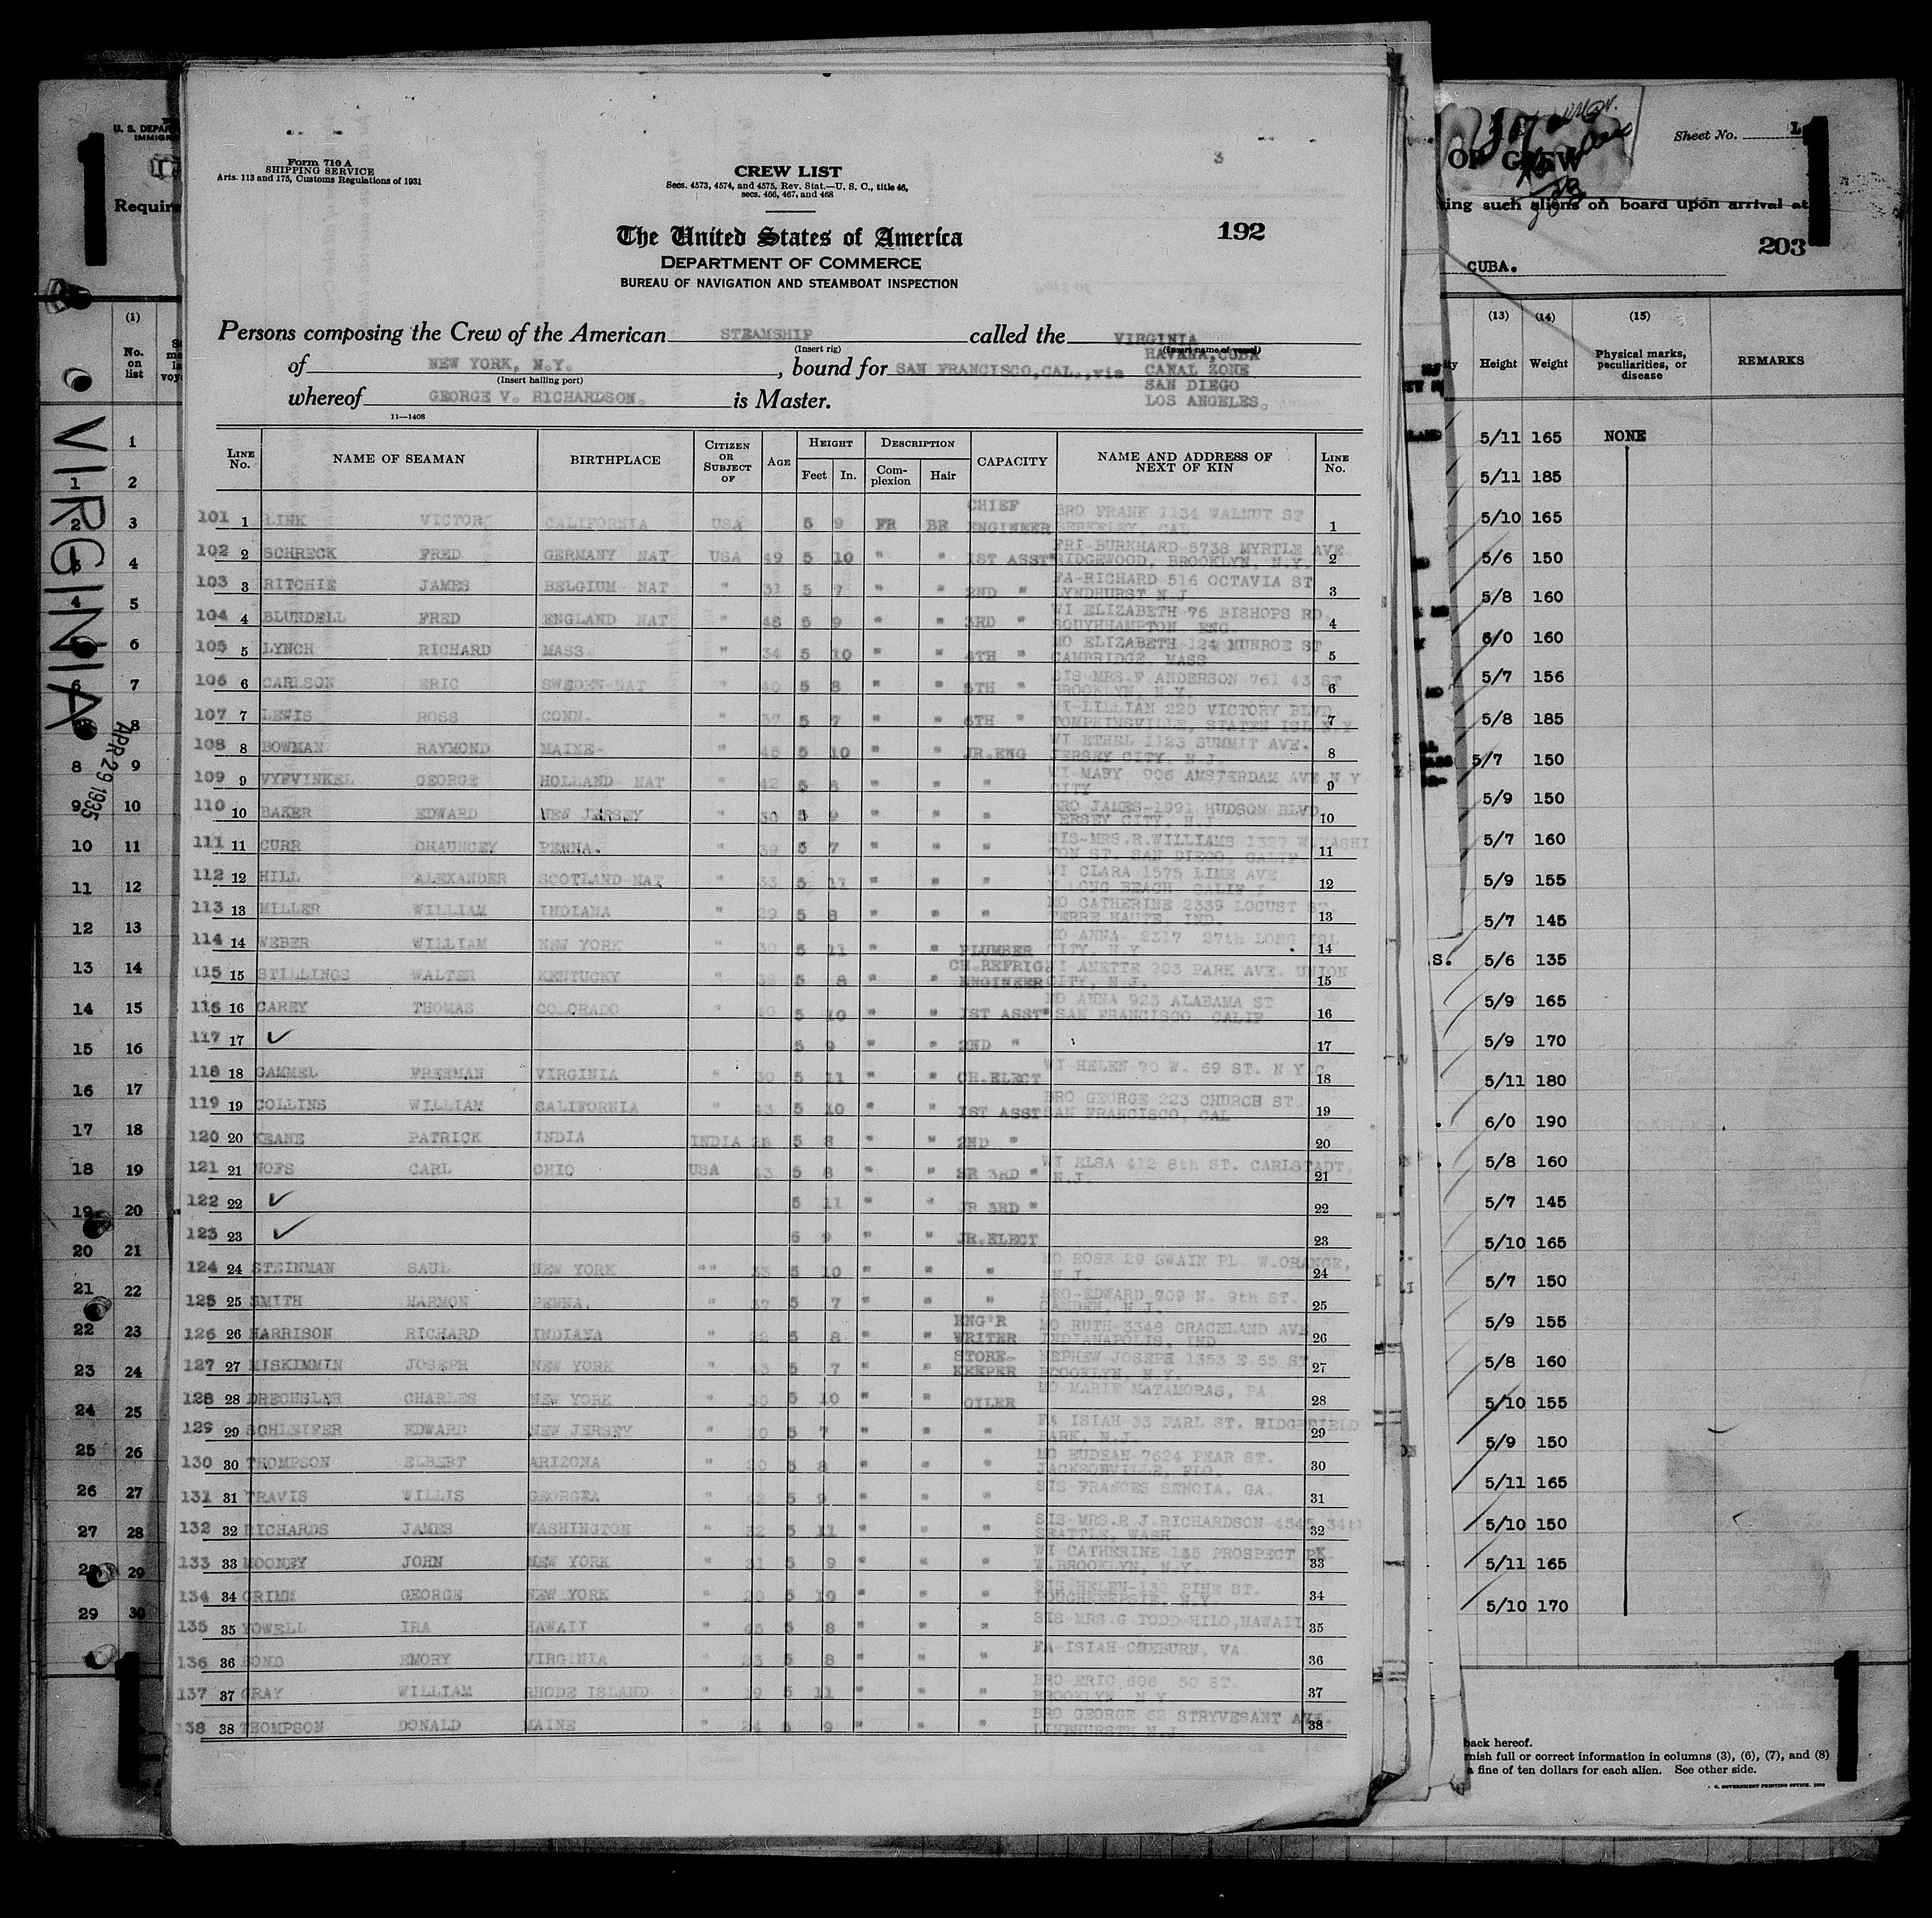 Form 710 A
SHIPPING SERVICE
Arts. 113 and 175, Customs Regulations of 1931
CREW LIST
Secs. 4573, 4574, and 4575, Rev. Stat.—U. S. C., title 46,
secs. 466, 467, and 468
3
192
The United States of America
DEPARTMENT OF COMMERCE
BUREAU OF NAVIGATION AND STEAMBOAT INSPECTION
Persons composing the Crew of the American STEAMSHIP called the VIRGINIA
(Insert rig) (Insert name of vessel)
of NEW YORK, N.Y. , bound for SAN FRANCISCO,CAL.,via HAVANA,CUBA
CANAL ZONE
SAN DIEGO
LOS ANGELES.
(Insert hailing port)
whereof GEORGE V. RICHARDSON. is Master.
11—1408
LINE No. NAME OF SEAMAN BIRTHPLACE CITIZEN OR SUBJECT OF AGE HEIGHT Feet In. DESCRIPTION Complexion Hair CAPACITY NAME AND ADDRESS OF NEXT OF KIN LINE No.
101 1 LINK VICTOR CALIFORNIA USA 5 9 FR BR CHIEF ENGINEER BRO FRANK 1134 WALNUT ST BERKELEY, CAL 1
102 2 SCHRECK FRED GERMANY NAT USA 49 5 10 " " 1ST ASST" FRI-BURKHARD 5738 MYRTLE AVE RIDGEWOOD, BROOKLYN, N.Y. 2
103 3 RITCHIE JAMES BELGIUM NAT " 31 5 7 " " 2ND " FA-RICHARD 516 OCTAVIA ST LYNDHURST N J 3
104 4 BLUNDELL FRED ENGLAND NAT " 48 5 9 " " 3RD " WI ELIZABETH 76 BISHOPS RD SOUYHHAMPTON ENG 4
105 5 LYNCH RICHARD MASS. " 34 5 10 " " 4TH " MO ELIZABETH 124 MUNROE ST CAMBRIDGE, MASS 5
106 6 CARLSON ERIC SWEDEN-NAT " 40 5 8 " " 5TH " SIS-MRS.F ANDERSON 761 43 ST BROOKLYN, N.Y. 6
107 7 LEWIS ROSS CONN. " 37 5 7 " " 6TH " WI-LILLIAN 220 VICTORY BLVD TOMPKINSVILLE, STATEN ISL N.Y 7
108 8 BOWMAN RAYMOND MAINE- " 45 5 10 " " JR.ENG WI-ETHEL 1123 SUMMIT AVE. JERSEY CITY, N.J. 8
109 9 VYFVINKEL GEORGE HOLLAND NAT " 42 5 8 " " " WI-MARY 906 AMSTERDAM AVE N Y CITY 9
110 10 BAKER EDWARD NEW JERSEY " 30 5 9 " " " BRO JAMES-1991 HUDSON BLVD JERSEY CITY, N.J 10
111 11 CURR CHAUNCEY PENNA. " 39 5 7 " " " SIS-MRS.R.WILLIAMS 1327 W. TON ST. SAN DIEGO, CALIF 11
112 12 HILL ALEXANDER SCOTLAND-NAT " 33 5 11 " " " WI CLARA 1575 LIME AVE LONG BEACH, CALIF 12
113 13 MILLER WILLIAM INDIANA " 29 5 8 " " " MO CATHERINE 2339 LOCUST ST. TERRE HAUTE, IND. 13
114 14 WEBER WILLIAM NEW YORK " 30 5 11 " " PLUMBER MO ANNA- 2317 27th LONG ISL CITY, N.Y. 14
115 15 STILLINGS WALTER KENTUCKY " 5 8 " " CH.REFRIG. ENGINEER WI ANETTE 903 PARK AVE. UNION CITY, N.J. 15
116 16 CAREY THOMAS COLORADO " 5 10 " " 1ST ASST" MO ANNA 923 ALABAMA ST SAN FRANCISCO CALIF 16
117 17 ✓ 5 9 " " 2ND " 17
118 18 GAMMEL FREEMAN VIRGINIA " 30 5 11 " " CH.ELECT WI HELEN 70 W. 69 ST. N Y C 18
119 19 COLLINS WILLIAM CALIFORNIA " 43 5 10 " " 1ST ASST BRO GEORGE 223 CHURCH ST SAN FRANCISCO, CAL 19
120 20 KEANE PATRICK INDIA INDIA 28 5 8 " " 2ND " 20
121 21 NOFS CARL OHIO USA 43 5 8 " " SR 3RD " WI ELSA 412 8th ST. CARLSTADT, N.J. 21
122 22 ✓ 5 11 " " JR 3RD " 22
123 23 ✓ 9 " " JR.ELECT 23
124 24 STEINMAN SAUL NEW YORK "" 33 5 10 " " " MO ROSE 29 SWAIN PL. W.ORANGE, N.J. 24
125 25 SMITH HARMON PENNA. " 37 5 7 " " " BRO-EDWARD 709 N. 9th ST. CAMDEN, N.J. 25
126 26 HARRISON RICHARD INDIANA " 5 8 " " ENG'R WRITER MO RUTH-3348 GRACELAND AVE INDIANAPOLIS, IND 26
127 27 MISKIMMIN JOSEPH NEW YORK " 43 5 7 " " STORE-KEEPER NEPHEW JOSEPH 1353 E.55 ST BROOKLYN, N.Y. 27
128 28 DRECHSLER CHARLES NEW YORK " 30 5 10 " " OILER MO MARIE MATAMORAS, PA 28
129 29 SCHLEIFER EDWARD NEW JERSEY " 5 7 " " " FA ISIAH 33 PARL ST. RIDGEFIELD PARK, N.J. 29
130 30 THOMPSON ELBERT ARIZONA " 5 8 " " " MO EUDEAH 7624 PEAR ST. JACKSONVILLE, FLO. 30
131 31 TRAVIS WILLIS GEORGEA " 5 9 " " " SIS FRANCES SENOIA, GA. 31
132 32 RICHARDS JAMES WASHINGTON " 5 11 " " " SIS-MRS.R J RICHARDSON 4545 34th SEATTLE, WASH 32
133 33 MOONEY JOHN NEW YORK " 31 5 9 " " " WI CATHERINE 155 PROSPECT PK W.BROOKLYN, N.Y. 33
134 34 GRIMM GEORGE NEW YORK " 5 10 " " " SIS HELEN-132 PINE ST. POUGHKEEPSIE, N.Y 34
135 35 YOWELL IRA HAWAII " 5 8 " " " SIS-MRS.G TODD-HILO,HAWAII 35
136 36 BOND EMORY VIRGINIA " 23 5 8 " " " FA-ISIAH-COEBURN, VA 36
137 37 GRAY WILLIAM RHODE ISLAND " 5 11 " " BRO ERIC 606 50 ST. BROOKLYN N Y 37
138 38 THOMPSON DONALD MAINE " 24 5 9 " " " BRO GEORGE 62 STRYVESANT AVE. LINDHURSTH N.J. 38
U. S. DEPAR
IMMIGR
Require
(1)
No. on list
VIRGINIA
APR 29 1935
1 2 3 4 5 6 7 8 9 10 11 12 13 14 15 16 17 18 19 20 21 22 23 24 25 26 27 28 29 30
1 2 3 4 5 6 7 8 9 10 11 12 13 14 15 16 17 18 19 20 21 22 23 24 25 26 27 28 29
OF CREW
Sheet No.
ing such aliens on board upon arrival at
203
CUBA.
(13) (14) (15)
Height Weight Physical marks, peculiarities, or disease REMARKS
5/11 165 NONE
5/11 185
5/10 165
5/6 150
5/8 160
6/0 160
5/7 156
5/8 185
5/7 150
5/9 150
5/7 160
5/9 155
5/7 145
S. 5/6 135
5/9 165
5/9 170
5/11 180
6/0 190
5/8 160
5/7 145
5/10 165
5/7 150
5/9 155
5/8 160
5/10 155
5/9 150
5/11 165
5/10 150
5/11 165
5/10 170
back hereof.
nish full or correct information in columns (3), (6), (7), and (8)
a fine of ten dollars for each alien. See other side.